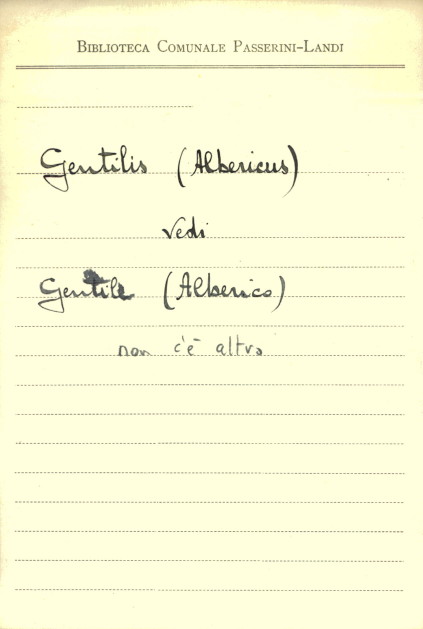 BIBLIOTECA COMUNALE PASSERINI-LANDI
Gentilis (Albericus)
vedi
Gentile (Alberico)
non c'è altro